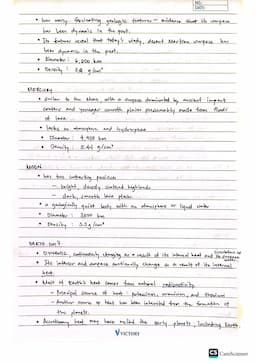 NO.
DATE:
• Has many fascinating geologic features - evidence that its surface
has been dynamic in the past.
• Its features reveal that today's windy, desert Martian surface has
been dynamic in the past.
• Diameter : 6,800 km
• Density : g/cm³
MERCURY
• Similar to the Moon, with a surface dominated by ancient impact
craters and younger smooth plains presumably made from floods
of lava.
• lacks an atmosphere and hydrosphere
• Diameter : 4,
• Density : 5.44 g/cm³
MOON
• has two contrasting position
- bright, densely cratered highlands
- dark, smooth lava plains
• is geologically quiet body with no atmosphere or liquid water
• Diameter :
• Density : 3.3 g/cm³
EARTH
• DYNAMIC, continuously changing as a result of its internal heat and
• Its interior and surface continually change as a result of its internal
heat.
• Most of Earth's heat comes from natural radioactivity.
- Principal source of heat : potassium, uranium, and thorium
- Another source of heat has been inherited from the formation of
this planet.
• Accretionary heat may have melted the early planets, including Earth.
VICTORY
CS CamScanner